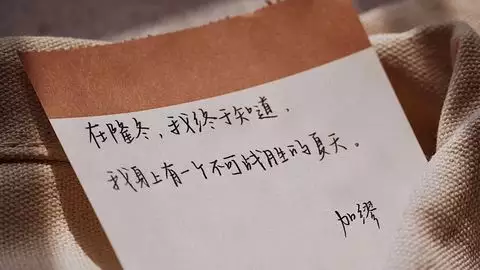 在隆冬，我终于知道，
我身上有一个不可战胜的夏天。
加缪